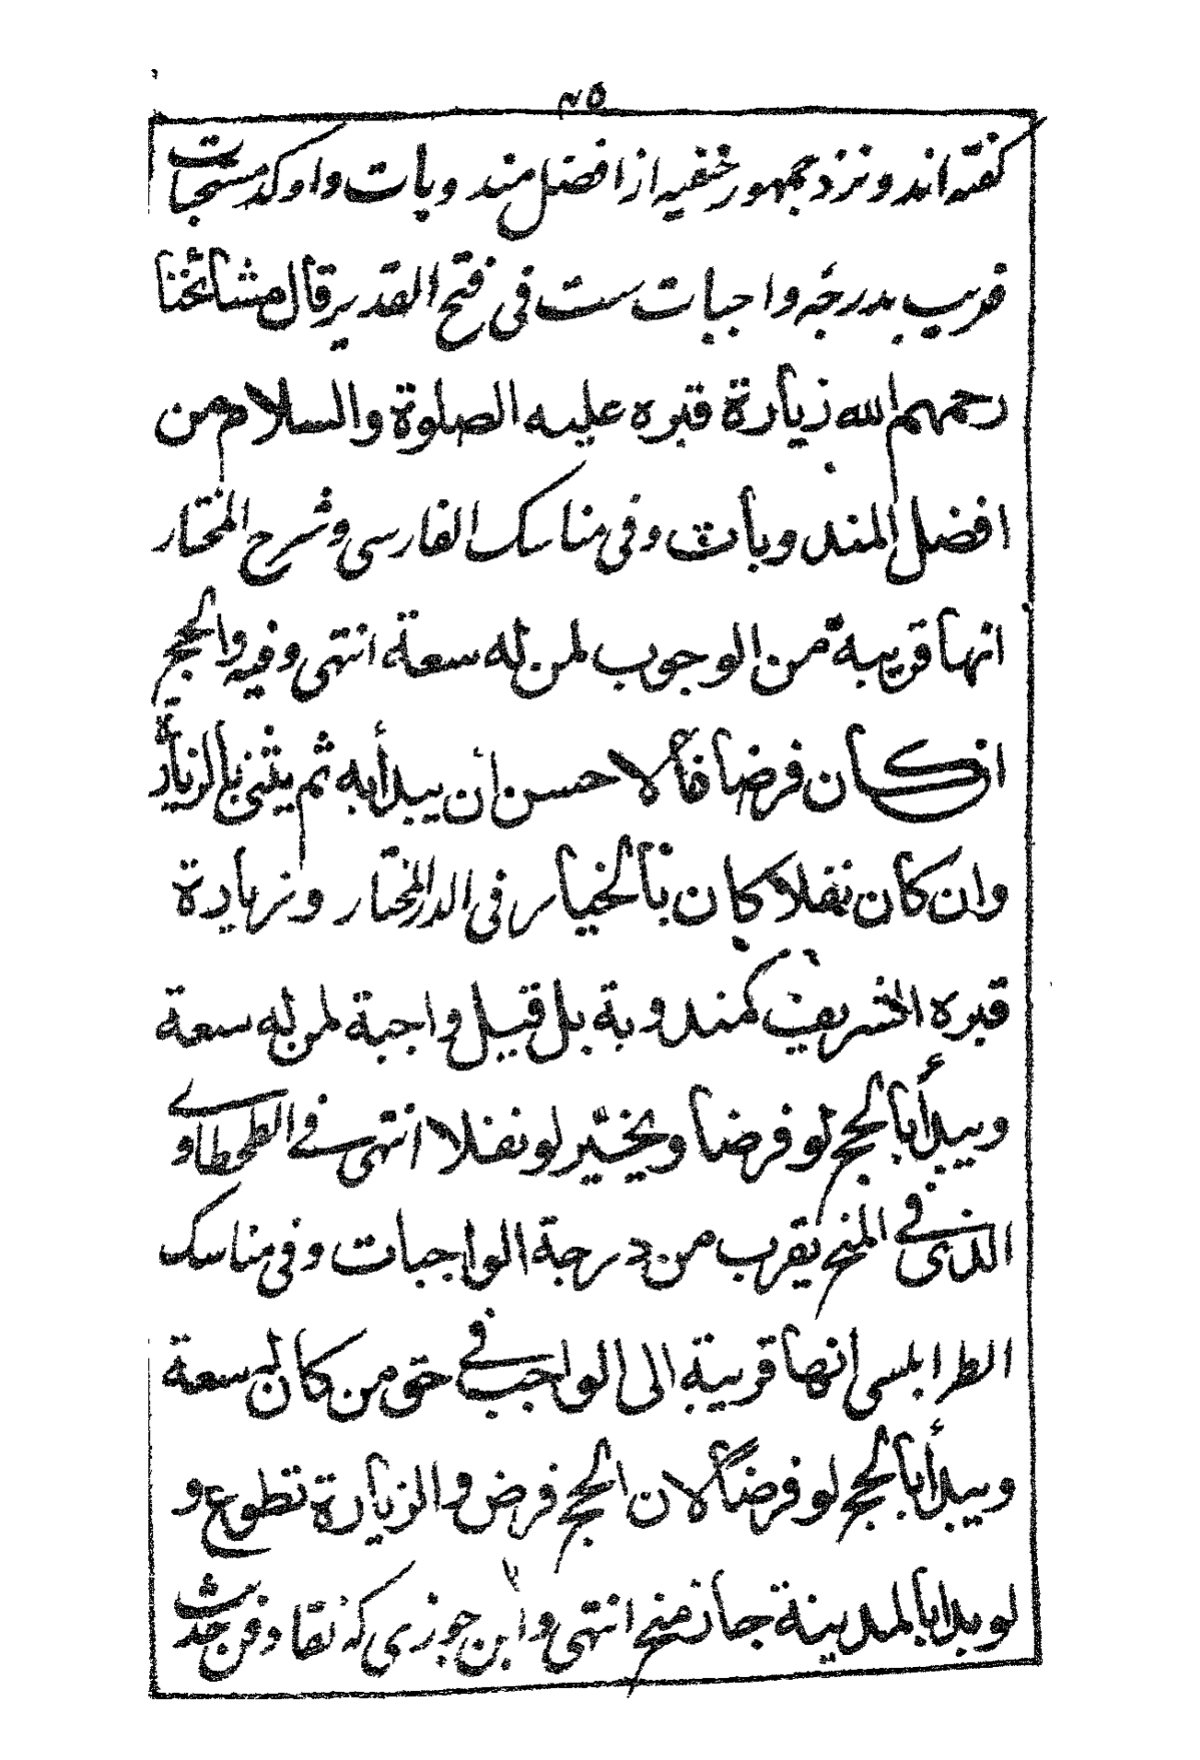 ۴۵
گفته اند و نزد جمهور حنفیه از افضل مندوبات و اوکد مستحبات
قریب بدرجه واجبات ست فی فتح القدیر قال مشائخنا
رحمهم الله زیارة قبره علیه الصلوة والسلام من
افضل المندوبات وفی مناسک الفارسی وشرح المختار
انها قریبة من الوجوب لمن له سعة انتهی وفیه والحج
ان کان فرضا فالاحسن ان یبدأ به ثم یثنی بالزیارة
وان کان نفلا کان بالخیار فی الدر المختار وزیادة
قبره الشریف مندوبة بل قیل واجبة لمن له سعة
ویبدأ بالحج لو فرضا ویخیر لو نفلا انتهی فی الطحطاوی
الذی فی المنح یقرب من درجة الواجبات وفی مناسک
الطرابلسی انها قریبة الی الواجب فی حق من کان له سعة
ویبدأ بالحج لو فرضا لان الحج فرض والزیارة تطوع و
لو بدا بالمدینة جاز منح انتهی وابن جوزی که نقاد فن حدیث